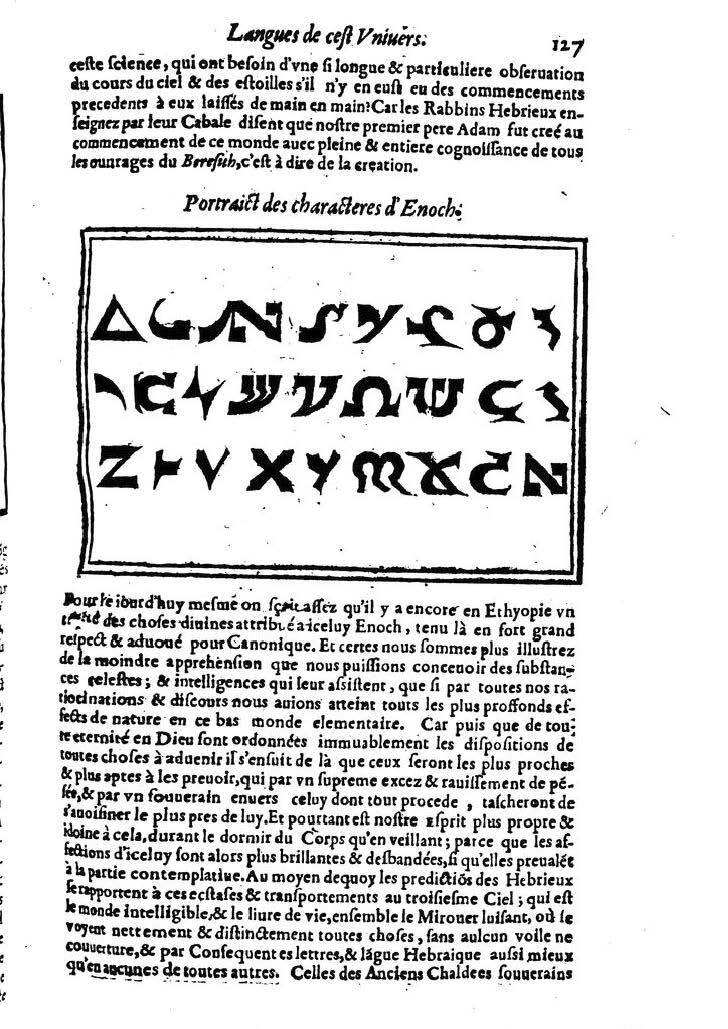 Langues de cest Vniuers. 127
ceste science, qui ont besoin d'vne si longue & particuliere obseruation
du cours du ciel & des estoilles s'il n'y en eust eu des commencements
precedents à eux laissés de main en main? Car les Rabbins Hebrieux en-
seignez par leur Cabale disent que nostre premier pere Adam fut creé au
commencement de ce monde auec pleine & entiere cognoissance de tous
les ouurages du Beresith, c'est à dire de la creation.
Portraict des characteres d'Enoch:
Pour le iourd'huy mesme on sçait assez qu'il y a encore en Ethyopie vn
traité des choses diuines attribué a iceluy Enoch, tenu là en fort grand
respect & aduoué pour Canonique. Et certes nous sommes plus illustrez
de la moindre apprehension que nous puissions conceuoir des substan-
ces celestes; & intelligences qui leur assistent, que si par toutes nos ra-
tiocinations & discours nous auions atteint touts les plus proffonds ef-
fects de nature en ce bas monde elementaire. Car puis que de tou-
te eternité en Dieu sont ordonnées immuablement les dispositions de
toutes choses à aduenir il s'ensuit de là que ceux seront les plus proches
& plus aptes à les preuoir, qui par vn supreme excez & rauissement de pé-
sée, & par vn souuerain enuers celuy dont tout procede, tascheront de
s'auoisiner le plus pres de luy. Et pourtant est nostre esprit plus propre &
idoine à cela, durant le dormir du Corps qu'en veillant; parce que les af-
fections d'iceluy sont alors plus brillantes & desbandées, si qu'elles preualét
à la partie contemplatiue. Au moyen dequoy les predictiós des Hebrieux
se rapportent à ces ecstases & transportements au troisiesme Ciel; qui est
le monde intelligible, & le liure de vie, ensemble le Mirouer luisant, où se
voyent nettement & distinctement toutes choses, sans aulcun voile ne
couuerture, & par Consequent es lettres, & lágue Hebraique aussi mieux
qu'en aucunes de toutes autres. Celles des Anciens Chaldees souuerains